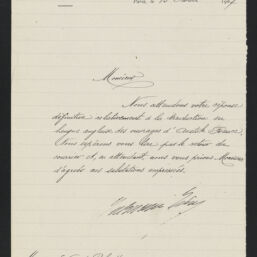 Monsieur
Nous attendons votre réponse
définitive relativement à la traduction en
langue anglaise des ouvrages d'Anatole France.
Nous espérons vous lire par le retour du
courrier et, en attendant, nous vous prions, Monsieur
d'agréer nos salutations empressées.